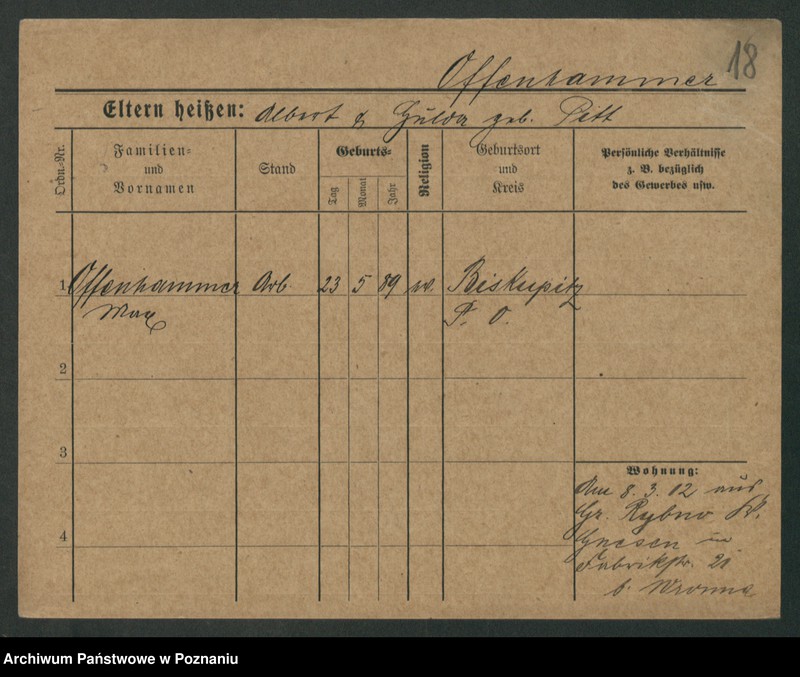 18
Offenhammer
Eltern heißen: Albert & Hulda geb. Pett
Ordn.-Nr.
Familien-
und
Vornamen
Stand
Geburts-
Tag
Monat
Jahr
Religion
Geburtsort
und
Kreis
Persönliche Verhältnisse
z. B. bezüglich
des Gewerbes usw.
1 Offenhammer Arb. 23 5 89 Biskupitz
Max P. O.
2
3
4
Wohnung:
Am 8. 3. 12 aus
Gr. Rybno, Kr.
Gnesen in
Fabrikstr. 21
b. Wronna
Archiwum Państwowe w Poznaniu